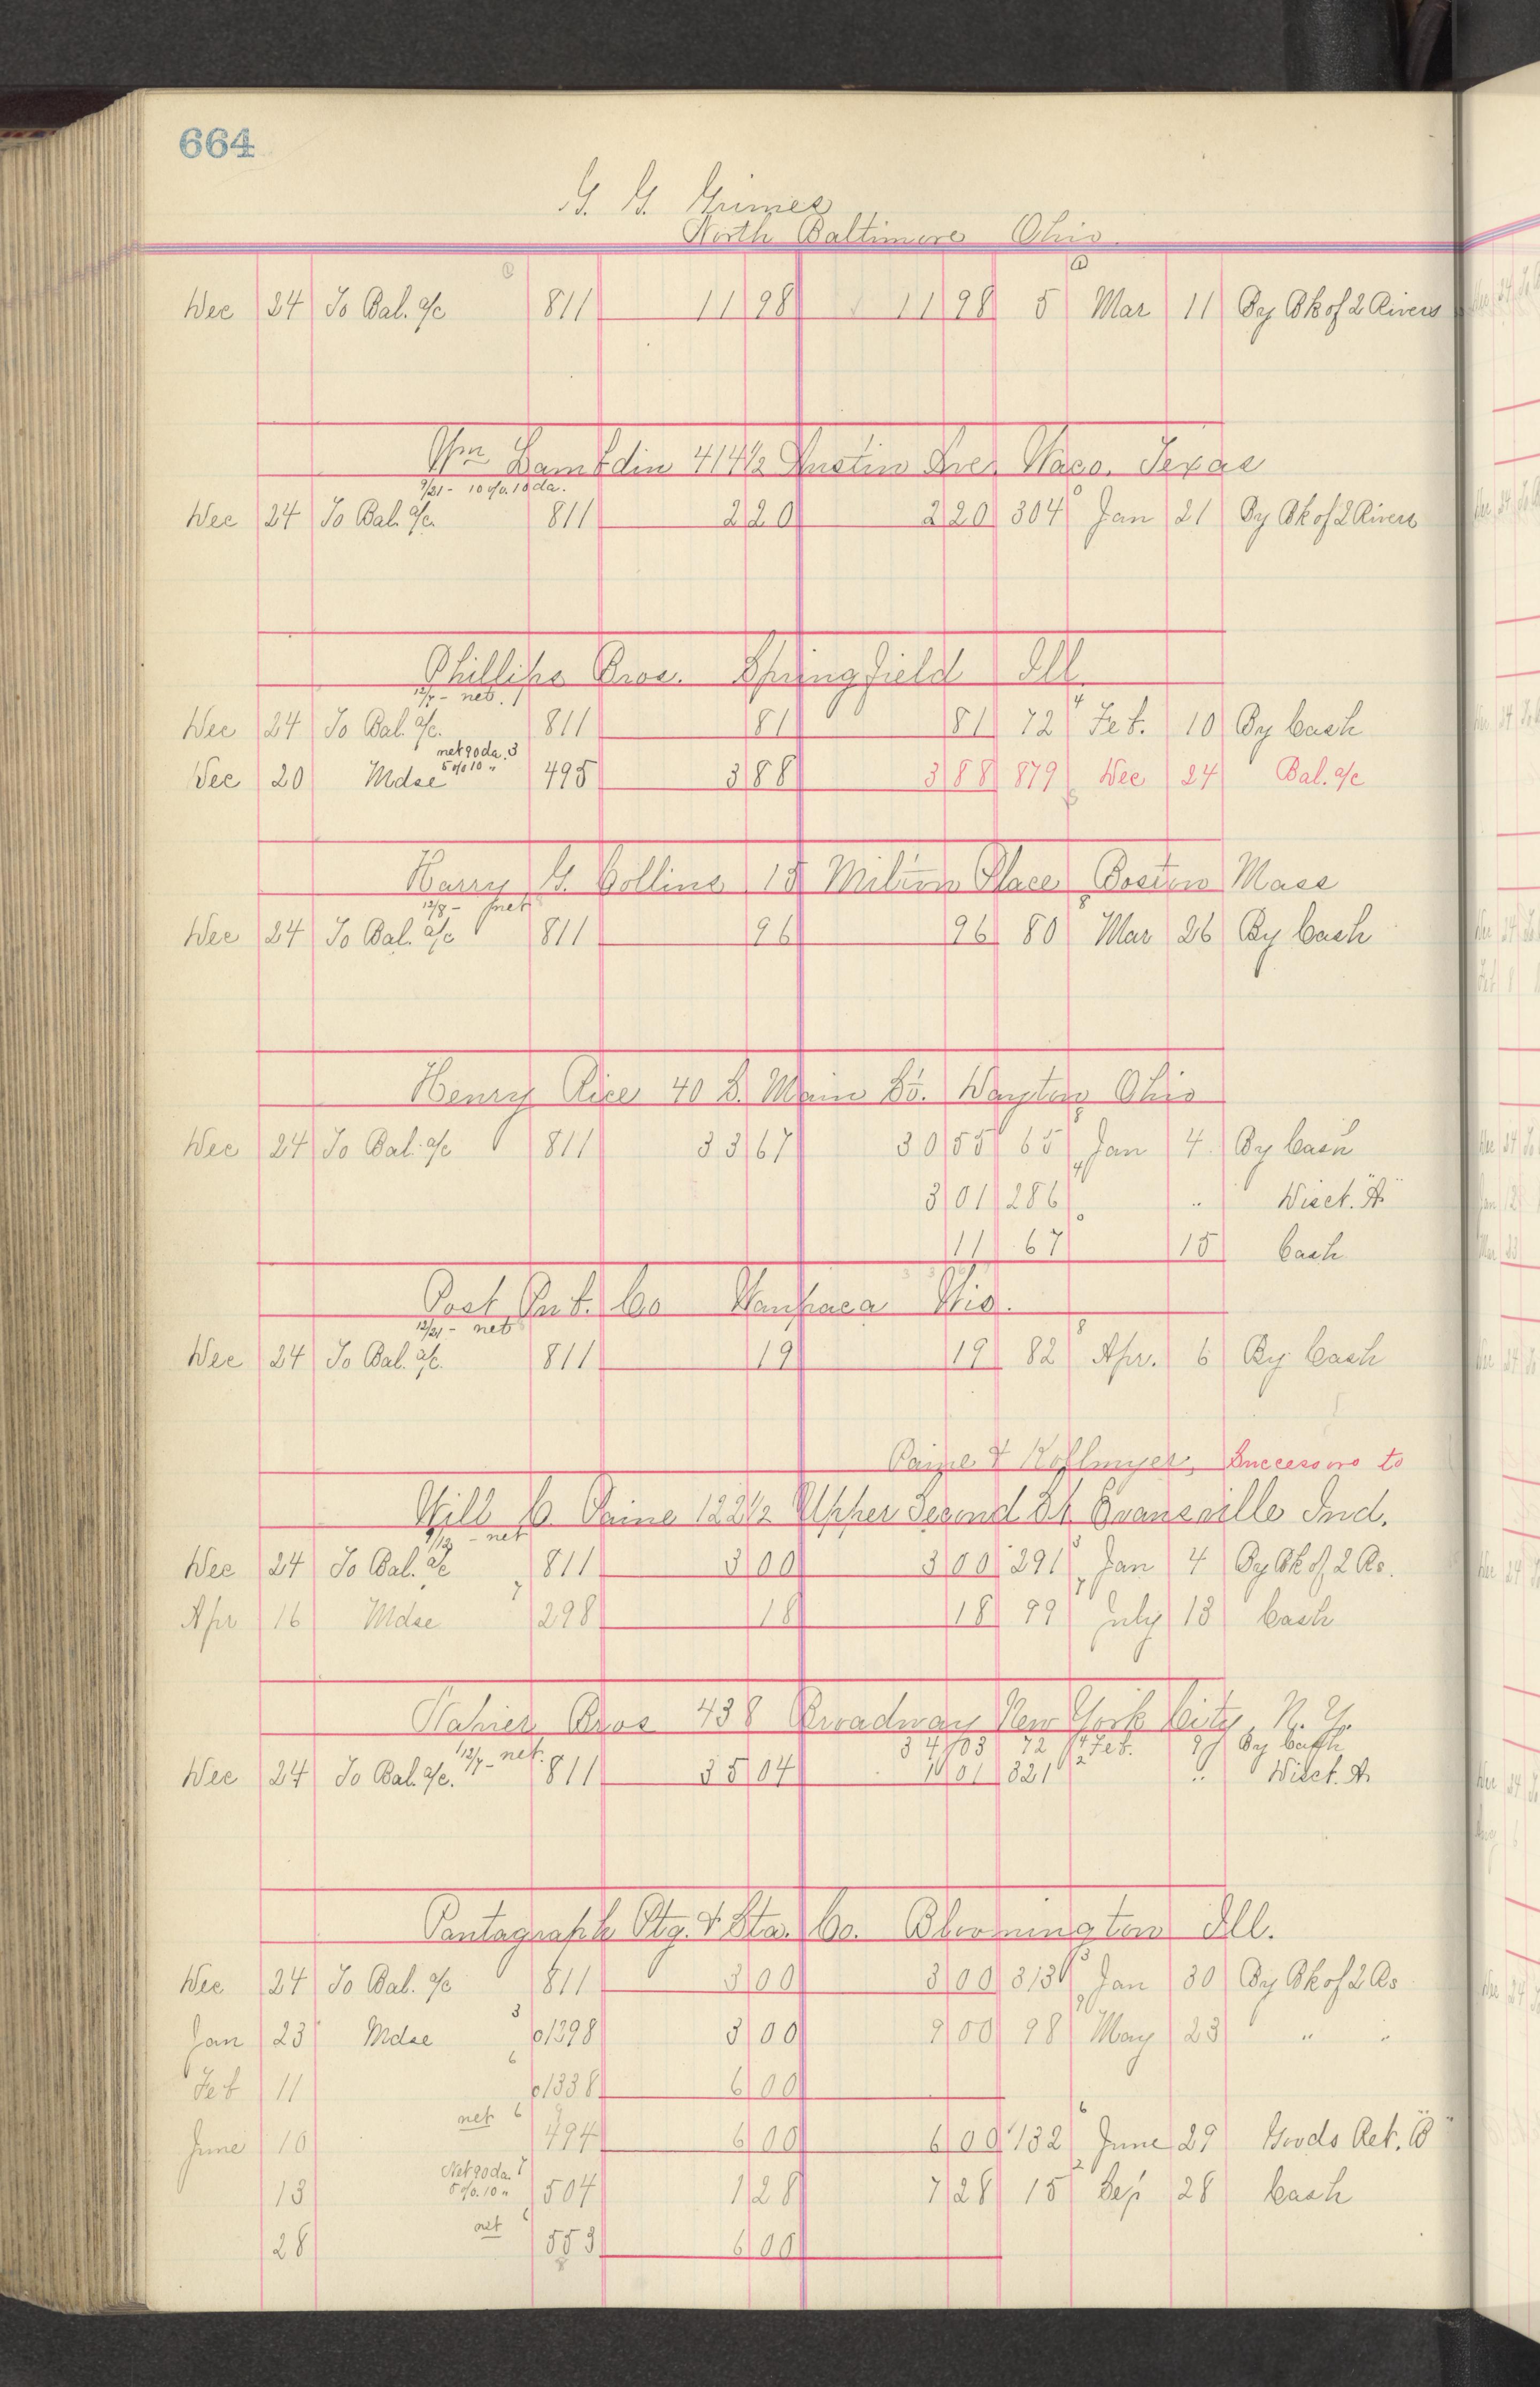 664
G. G. Grimes
North Baltimore Ohio
Dec 24 To Bal. a/c 811 11 98 11 98 5 Mar 11 By Bk of 2 Rivers
Wm Lambdin 414½ Austin Ave. Waco. Texas
9/21 - 10 o/o. 10 da.
Dec 24 To Bal. a/c. 811 2 20 2 20 304 Jan 21 By Bk of 2 Rivers
Phillips Bros. Springfield Ill.
12/7 - net.
Dec 24 To Bal. a/c. 811 81 81 72 Feb. 10 By Cash
net 90 da. 3
5 o/o 10 "
Dec 20 Mdse 495 3 88 3 88 879 Dec 24 Bal. a/c
Harry G. Collins 15 Milton Place Boston Mass
12/8 - net
Dec 24 To Bal. a/c 811 96 96 80 Mar 26 By Cash
Henry Rice 40 S. Main St. Dayton Ohio
Dec 24 To Bal. a/c 811 33 67 30 55 65 Jan 4 By Cash
3 01 286 " Disct. "A"
11 67 15 Cash
Post Pub. Co Waupaca Wis.
12/21 - net
Dec 24 To Bal. a/c. 811 19 19 82 Apr. 6 By Cash
Paine & Kollmyer, Successors to
Will C. Paine 122½ Upper Second St Evansville Ind.
9/12 - net
Dec 24 To Bal. a/c 811 3 00 3 00 291 Jan 4 By Bk of 2 Rs.
Apr 16 Mdse 298 18 18 99 July 13 Cash
Bros 438 Broadway New York City, N. Y.
12/7 - net. 34 03 72 Feb. 9 By Cash
Dec 24 To Bal. a/c. 811 35 04 1 01 321 " Disct. A
Pantagraph Ptg. & Sta. Co. Bloomington Ill.
Dec 24 To Bal. a/c 811 3 00 3 00 313 Jan 30 By Bk of 2 Rs
Jan 23 Mdse 3 01298 3 00 9 00 98 May 23 " "
Feb 11 6 01338 6 00
June 10 net 6 494 6 00 6 00 132 June 29 Goods Ret. "B"
Net 90 da. 7
5 o/o. 10 "
13 504 1 28 7 28 15 Sep 28 Cash
28 net 553 6 00